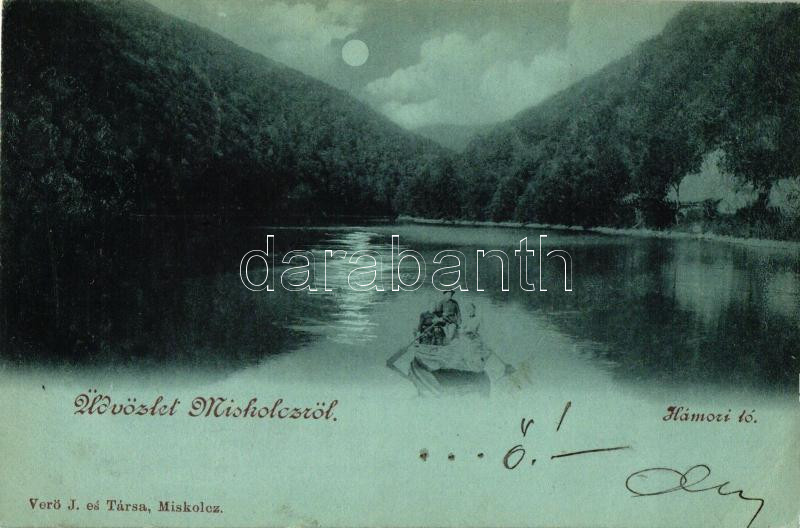 darabanth.
Üdvözlet Miskolczról.
Hámori tó.
... Ő! –
Verö J. eś Társa, Miskolcz.